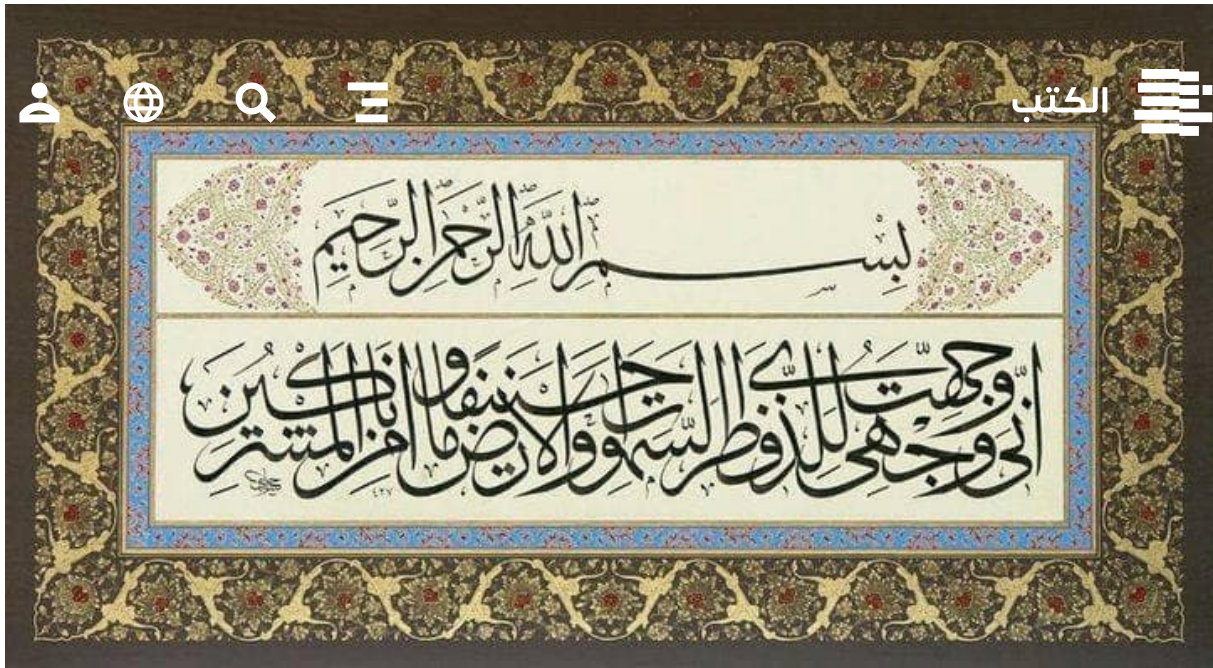 الكتب
بسم الله الرحمن الرحيم
انى وجهت وجهى للذى فطر السموات والارض حنيفا وما انا من المشركين